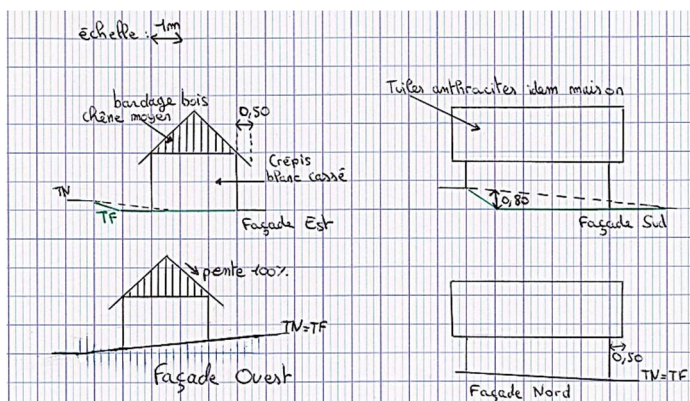 échelle : 1m
bardage bois
chêne moyen
0,50
Crépis
blanc cassé
TN
TF
Façade Est
Tuiles anthracites idem maison
0,80
Façade Sud
pente 100%
TN=TF
Façade Ouest
0,50
TN=TF
Façade Nord